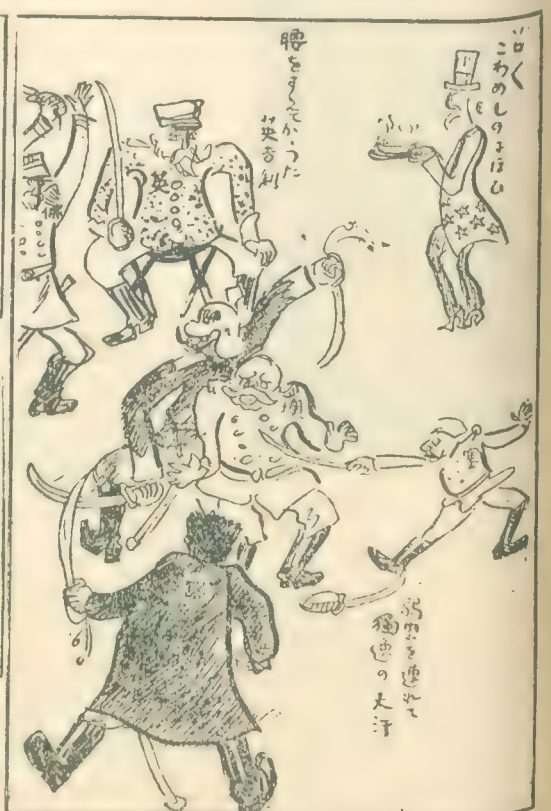 こわめしのよほひ
腰をすゑてかゝつた
英吉利
英
佛
弱虫を連れて
獨逸の大汗